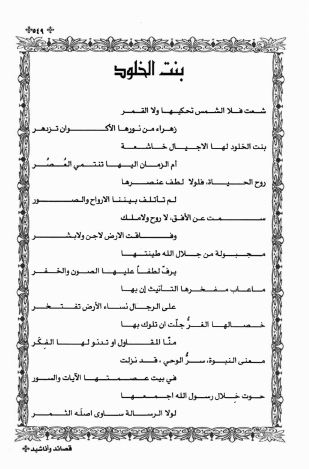 ٥٤٩
بنت الخلود
شعت فلا الشمس تحكيها ولا القمر
زهراء من نورها الأكوان تزدهر
بنت الخلود لها الاجيال خاشعة
أم الزمان اليها تنتمي العُصُر
روح الحياة، فلولا لطف عنصرها
لم تأتلف بيننا الارواح والصور
سمت عن الأفق، لا روح ولاملك
وفاقت الارض لاجن ولابشر
مجبولة من جلال الله طينتها
يرفّ لطفاً عليها الصون والخفر
ماعاب مفخرها التأنيث إن بها
على الرجال نساء الأرض تفتخر
خصالها الغرّ جلّت ان تلوك بها
منّا المقاول او تدنو لها الفِكَر
معنى النبوة، سرّ الوحي، قد نزلت
في بيت عصمتها الآيات والسور
حوت خِلال رسول الله اجمعها
لولا الرسالة ساوى اصله الثمر
قصائد وأناشيد